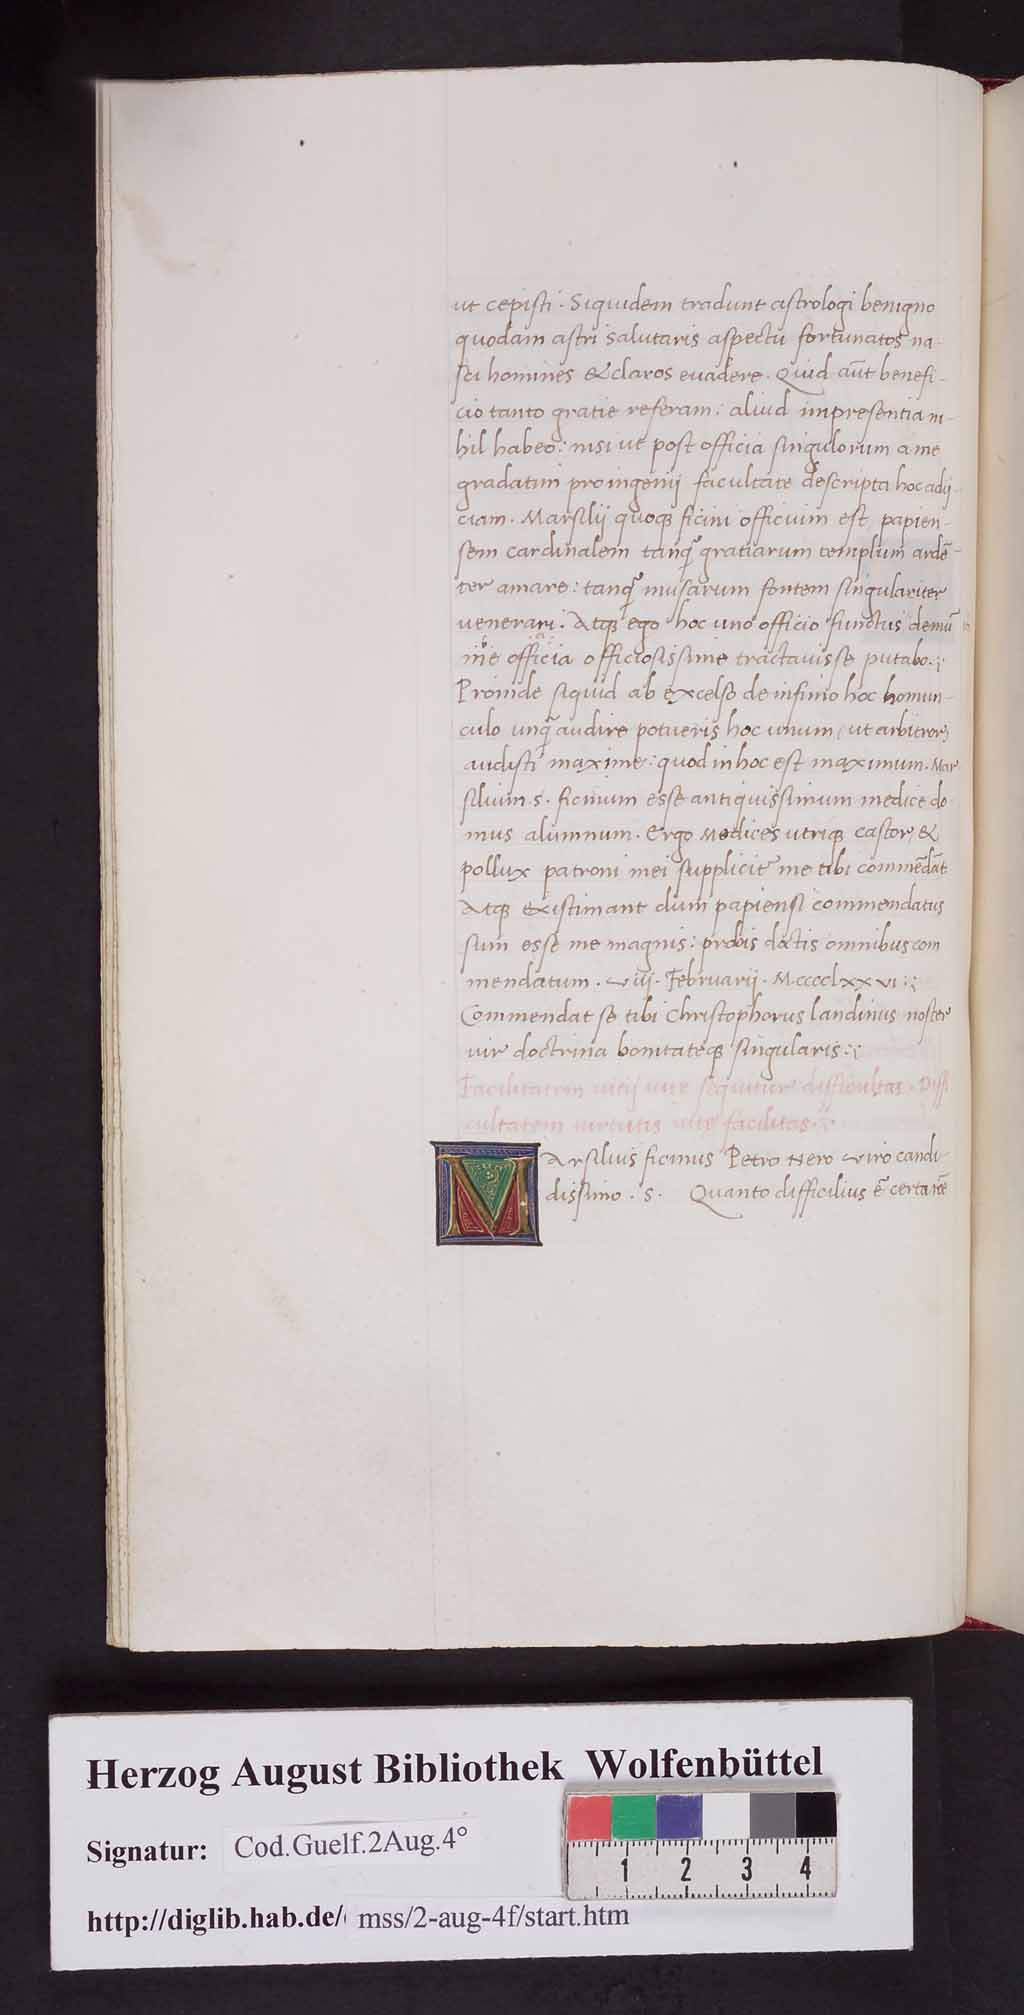 ut cepisti. Siquidem tradunt astrologi benigno
quodam astri salutaris aspectu fortunatos na-
sci homines & claros evadere. Quid aūt benefi-
cio tanto gratie referam: aliud impresentia ni-
hil habeo: nisi ut post officia singulorum a me
gradatim pro ingenij facultate descripta hoc adij-
ciam. Marsilij quoqꝫ ficini officium est papien-
sem cardinalem tanq̄ gratiarum templum ardē-
ter amare: tanq̄ musarum fontem singulariter
venerari. Atqꝫ ego hoc uno officio functus demū
officia officiosissime tractavisse putabo.:
Proinde siquid ab excelso de infimo hoc homun-
culo unq̄ audire potueris hoc unum (ut arbitror)
audisti maxime: quod in hoc est maximum. Mar
silium .s. ficinum esse antiquissimum medice do
mus alumnum. Ergo Medices utriqꝫ castor, &
pollux patroni mei supplicit̄ me tibi commēdāt
Atqꝫ existimant dum papiensi commendatus
sum esse me magnis: probis doctis omnibus com
mendatum. viij. Februarij. Mcccclxxvi.:
Commendat se tibi Christophorus landinus noster
vir doctrina bonitateqꝫ singularis.:
Facilitatem vitij vite sequitur difficultas. Diffi
cultatem virtutis vite facilitas.:
Marsilius ficinus Petro Nero viro candi-
dissimo .s. Quanto difficilius ē certare
Herzog August Bibliothek Wolfenbüttel
Signatur: Cod.Guelf.2Aug.4°
http://diglib.hab.de/ mss/2-aug-4f/start.htm
1 2 3 4